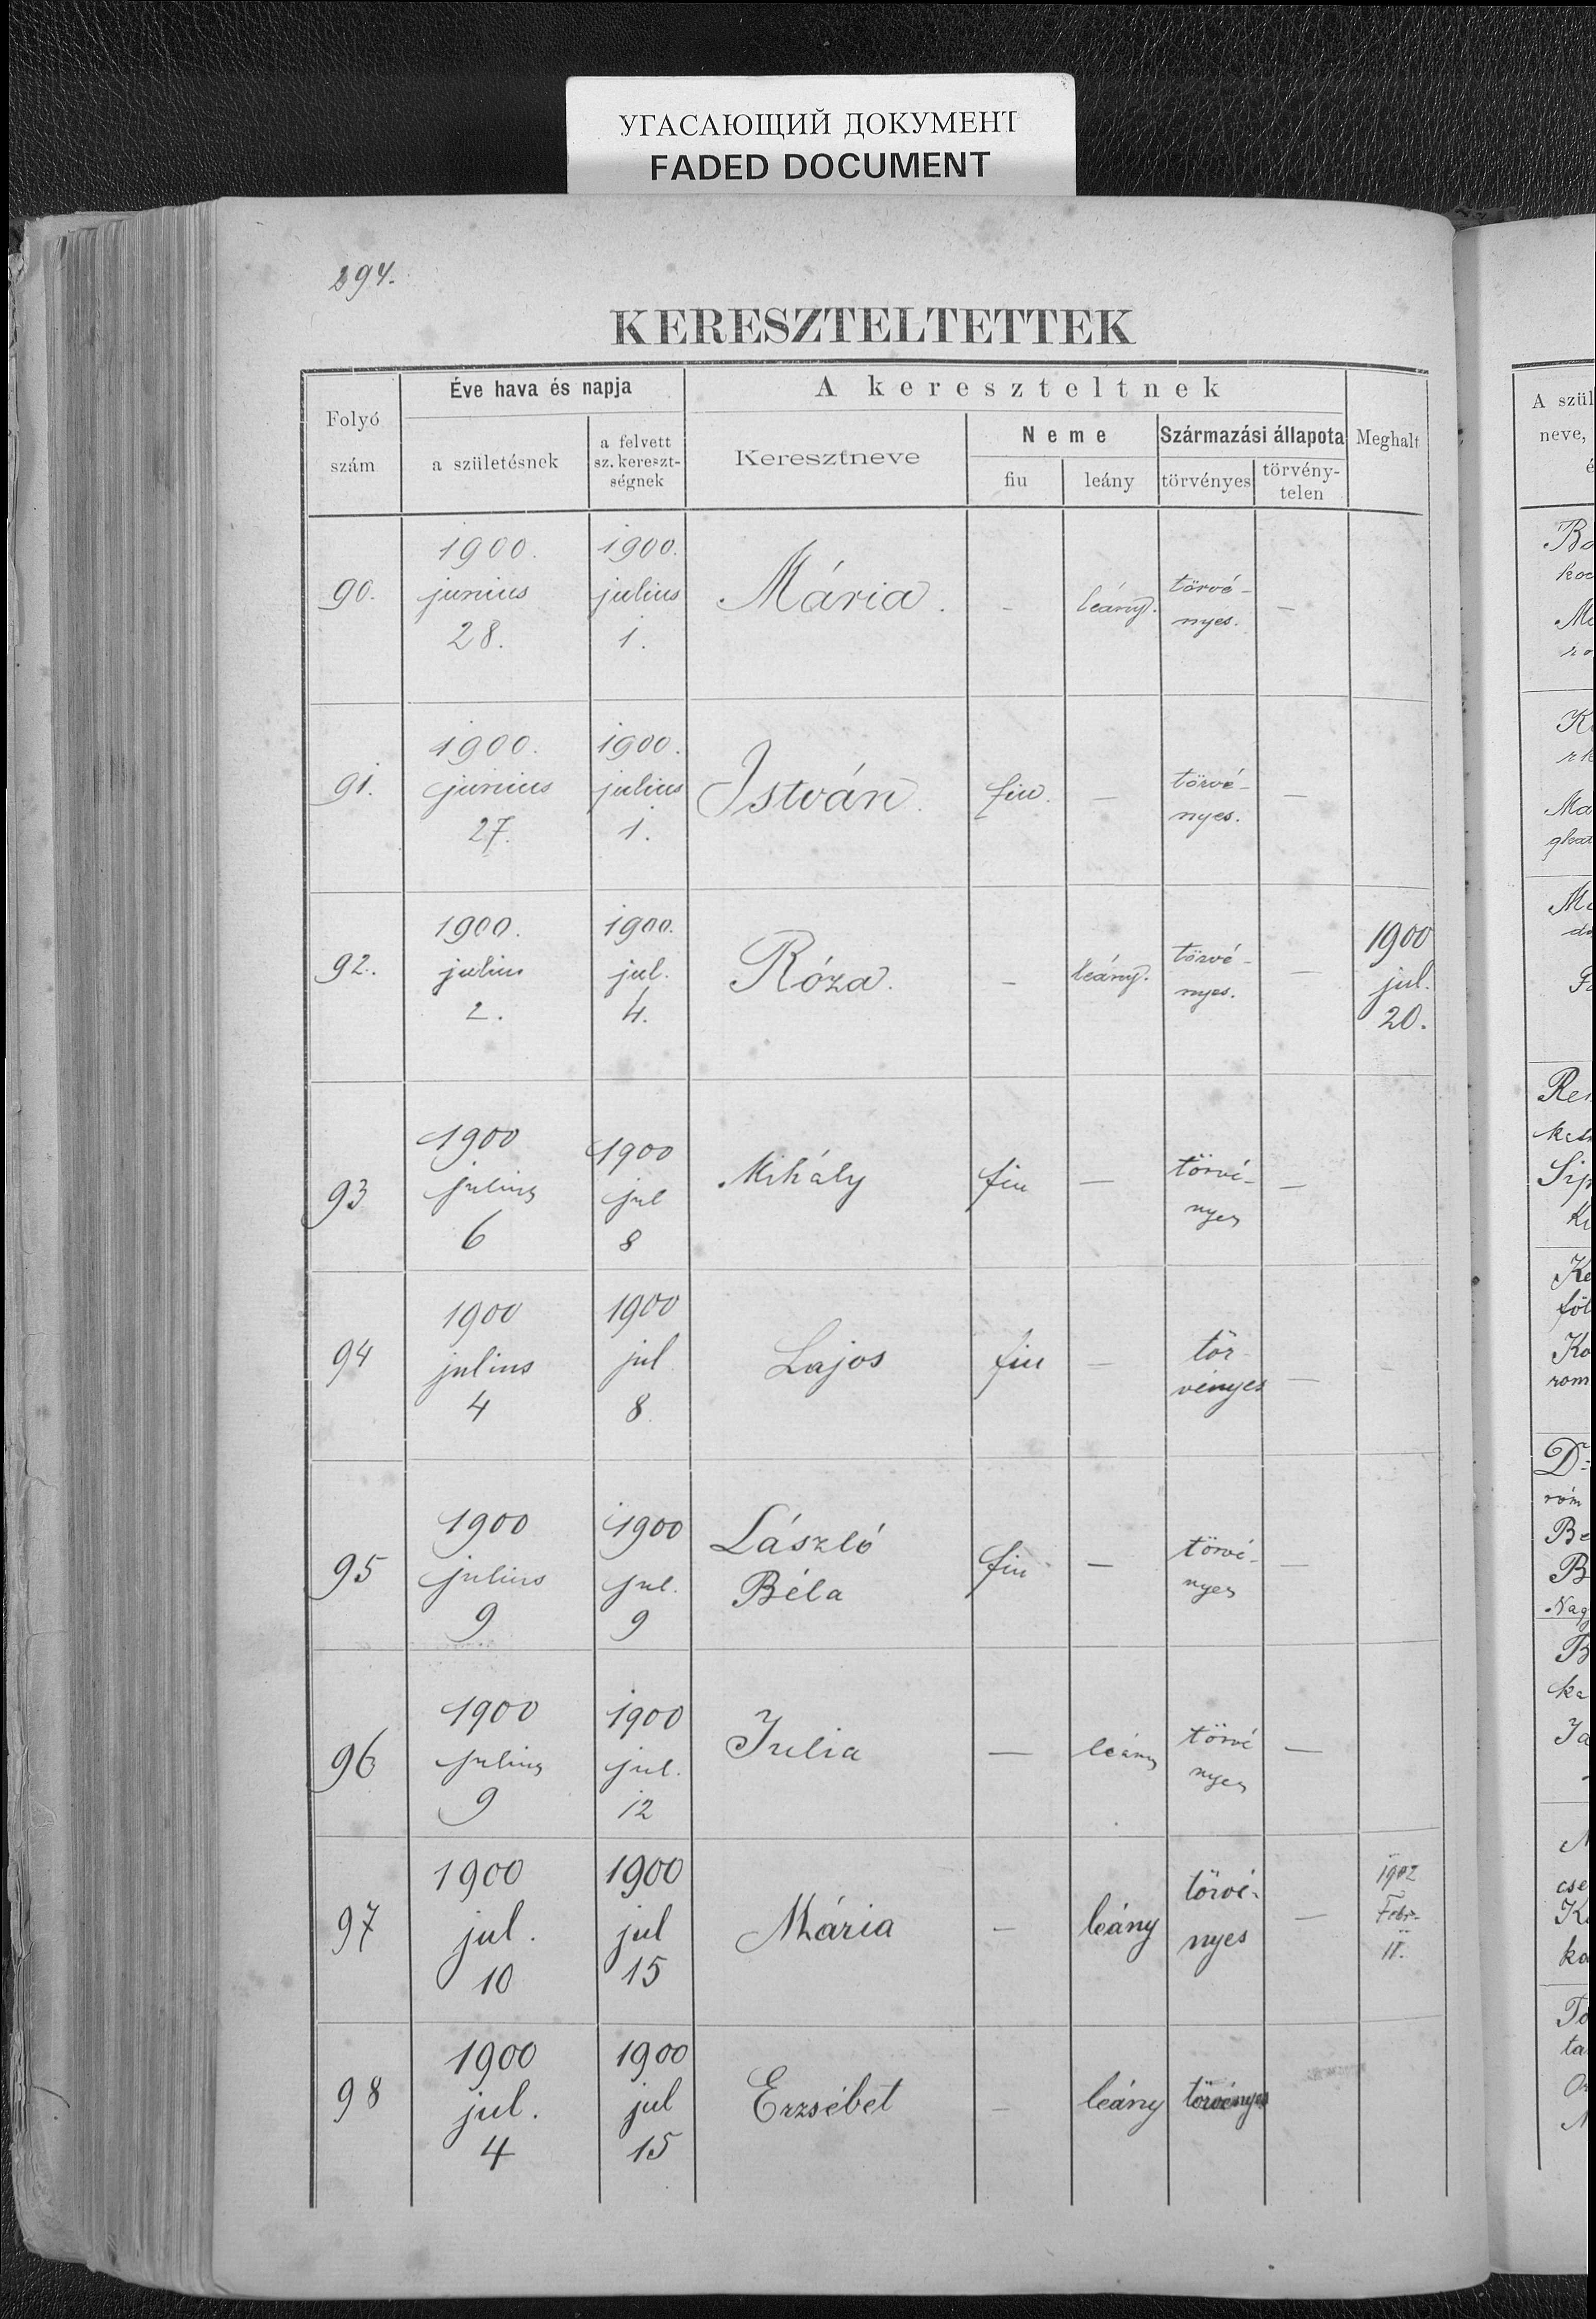 УГАСАЮЩИЙ ДОКУМЕНТ
FADED DOCUMENT
294.
KERESZTELTETTEK
Folyó szám
Éve hava és napja
a születésnek
a felvett sz. kereszt-ségnek
A kereszteltnek
Keresztneve
Neme
fiu
leány
Származási állapota
törvényes
törvény-telen
Meghalt
A szül
neve,
é
90.
1900.
junius
28.
1900.
julius
1.
Mária.
-
leány.
törvé-
nyes.
-
91.
1900.
junius
27.
1900.
julius
1.
István.
fiu.
-
törvé-
nyes.
-
92.
1900.
julius
2.
1900.
jul.
4.
Róza.
-
leány.
törvé-
nyes.
-
1900
jul.
20.
93
1900
julius
6
1900
jul
8
Mihály
fiu
-
törvé-
nyes
-
94
1900
julius
4
1900
jul
8
Lajos
fiu
-
tör-
vényes
-
95
1900
julius
9
1900
jul.
9
László
Béla
fiu
-
törvé-
nyes
-
96
1900
julius
9
1900
jul.
12
Julia
-
leány
törvé
nyes
-
97
1900
jul.
10
1900
jul
15
Mária
-
leány
törvé-
nyes
-
1902
Febr.
11.
98
1900
jul.
4
1900
jul
15
Erzsébet
-
leány
törvényes